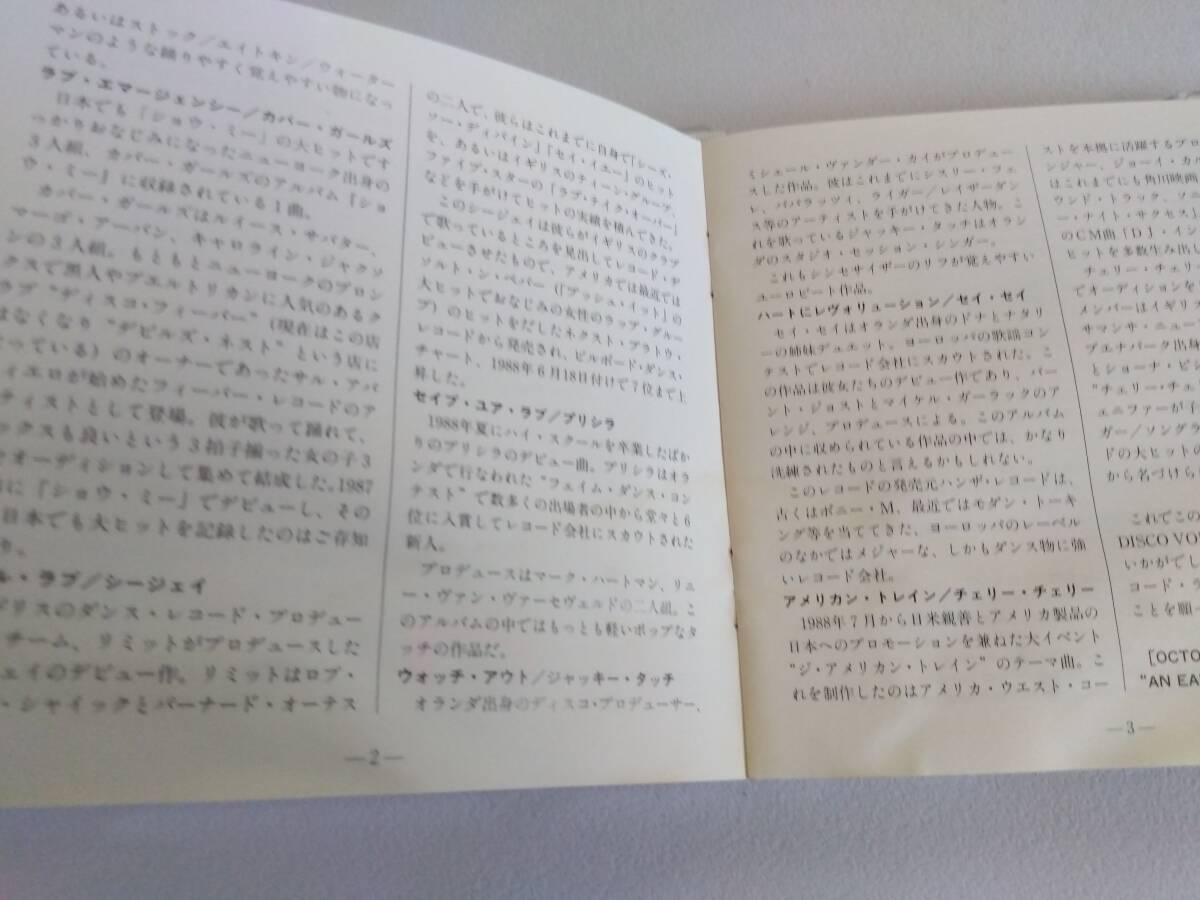 あるいはストック/エイトキン/ウォーター
マンのような踊りやすく覚えやすい物になっ
ている。
ラブ・エマージェンシー/カバー・ガールズ
日本でも「ショウ・ミー」の大ヒットです
っかりおなじみになったニューヨーク出身の
3人組、カバー・ガールズのアルバム『ショ
ウ・ミー』に収録されている1曲。
カバー・ガールズはルイース・サバター、
マーゴ・アーバン、キャロライン・ジャクソ
ンの3人組。もともとニューヨークのブロン
クスで黒人やプエルトリカンに人気のあるク
ラブ“ディスコ・フィーバー”(現在はこの店
はなくなり“デビルズ・ネスト”という店に
なっている)のオーナーであったサル・アバ
ィエロが始めたフィーバー・レコードのア
ティストとして登場。彼が歌って踊れて、
ックスも良いという3拍子揃った女の子3
オーディションして集めて結成した。1987
に「ショウ・ミー」でデビューし、その
日本でも大ヒットを記録したのはご存知
り。
ル・ラブ/シージェイ
ギリスのダンス・レコード・プロデュー
チーム、リミットがプロデュースした
ェイのデビュー作。リミットはロブ・
・シャイックとバーナード・オーテス
—2—
の二人で、彼らはこれまでに自身で「シーズ・
ソー・ディバイン」「セイ・イエー」のヒット
を、あるいはイギリスのティーン・グループ、
ファイブ・スターの「ラブ・テイク・オーバー」
などを手がけてヒットの実績を積んできた。
このシージェイは彼らがイギリスのクラブ
で歌っているところを見出してレコード・デ
ビューさせたもので、アメリカでは最近では
ソルト・ン・ペパー(「プッシュ・イット」の
大ヒットでおなじみの女性のラップ・グルー
プ)のヒットをだしたネクスト・プラトウ・
レコードから発売され、ビルボード・ダンス・
チャート、1988年6月18日付けで7位まで上
昇した。
セイブ・ユア・ラブ/プリシラ
1988年夏にハイ・スクールを卒業したばか
りのプリシラのデビュー曲。プリシラはオラ
ンダで行なわれた“フェイム・ダンス・コン
テスト”で数多くの出場者の中から堂々と6
位に入賞してレコード会社にスカウトされた
新人。
プロデュースはマーク・ハートマン、リニ
ー・ヴァン・ヴァーセヴェルドの二人組。こ
のアルバムの中ではもっとも軽いポップなタ
ッチの作品だ。
ウォッチ・アウト/ジャッキー・タッチ
オランダ出身のディスコ・プロデューサー、
ミシェール・ヴァンダー・カイがプロデュー
スした作品。彼はこれまでにシスリー・フェ
レ、パパラッツィ、ライガー/レイザーダン
ス等のアーティストを手がけてきた人物。こ
れを歌っているジャッキー・タッチはオラン
ダのスタジオ・セッション・シンガー。
これもシンセサイザーのリフが覚えやすい
ユーロビート作品。
ハートにレヴォリューション/セイ・セイ
セイ・セイはオランダ出身のドナとナタリ
ーの姉妹デュエット。ヨーロッパの歌謡コン
テストでレコード会社にスカウトされた。こ
の作品は彼女たちのデビュー作であり、バー
ント・ジョストとマイケル・ガーラックのア
レンジ、プロデュースによる。このアルバム
の中に収められている作品の中では、かなり
洗練されたものと言えるかもしれない。
このレコードの発売元ハンザ・レコードは、
古くはボニー・M、最近ではモダン・トーキ
ング等を当ててきた、ヨーロッパのレーベル
のなかではメジャーな、しかもダンス物に強
いレコード会社。
アメリカン・トレイン/チェリー・チェリー
1988年7月から日米親善とアメリカ製品の
日本へのプロモーションを兼ねた大イベント
“ジ・アメリカン・トレイン”のテーマ曲。こ
れを制作したのはアメリカ・ウエスト・コー
ストを本拠に活躍するプロ
ンジャー、ジョーイ・カ
はこれまでにも角川映画
ウンド・トラック、フ
ー・ナイト・サクセス」
のCM曲「DJ・イン
ヒットを多数生み出し
チェリー・チェリ
でオーディションを
メンバーはイギリス
サマンサ・ニュー
ブエナパーク出身
とショーナ・ピン
“チェリー・チェ
ェニファーが子
ガー/ソングラ
ドの大ヒットの
から名づけら
これでこの
DISCO VO
いかがでし
コード・
ことを願
[OCTO
“AN EA
—3—